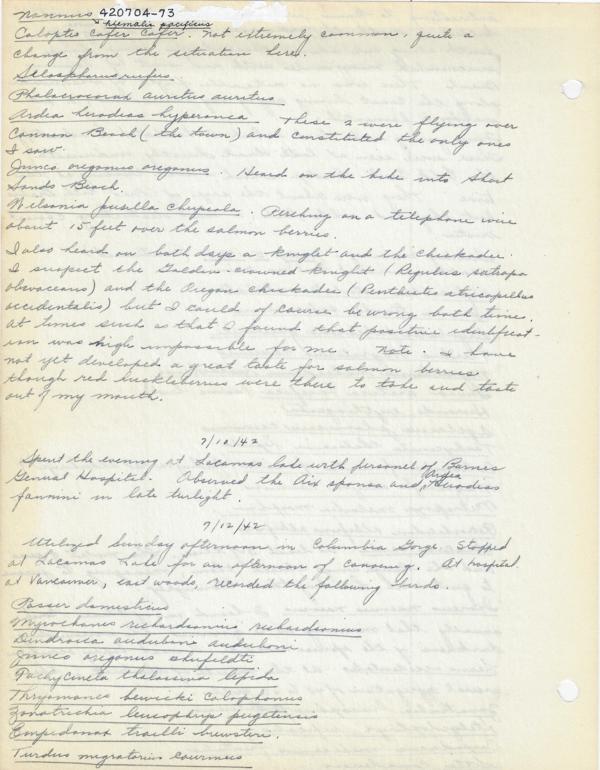 Nannus 420704-73
hiemalis pacificus
Colaptes cafer cafer. Not extremely common, quite a
change from the situation here.
Selasphorus rufus.
Phalacrocorax auritus auritus
Ardea herodias hyperonca These 2 were flying over
Cannon Beach (the town) and constituted the only ones
I saw.
Junco oreganus oreganus. Heard on the hike into Short
Sands Beach.
Wilsonia pusilla chryseola. Perching on a telephone wire
about 15 feet over the salmon berries.
I also heard on both days a kinglet and the chickadee.
I suspect the Golden-crowned kinglet (Regulus satrapa
olivaceous) and the Oregon chickadee (Penthestes atricapillus
occidentalis) but I could of course be wrong both time.
At times such as that I found that positive identificat-
ion was nigh impossible for me. Note. I have
not yet developed a great taste for salmon berries
though red huckleberries were there to take and taste
out of my mouth.
7/10/42
Spent the evening at Lacamas lake with personel of Barnes
General Hospital. Observed the Aix sponsa and Ardea Herodias
fannini in late twilight.
7/12/42
Utilized Sunday afternoon in Columbia Gorge. Stopped
at Lacamas Lake for an afternoon of canoeing. At hospital
at Vancouver, east woods, recorded the following birds.
Passer domesticus
Myiochanes richardsonii richardsonius
Dendroica auduboni auduboni
Junco oreganus shufeldti
Tachycineta thalassina lepida
Thryomanes bewicki calophonus
Zonotrichia leucophrys pugetensis
Empidonax trailli brewsteri.
Turdus migratorius caurinus